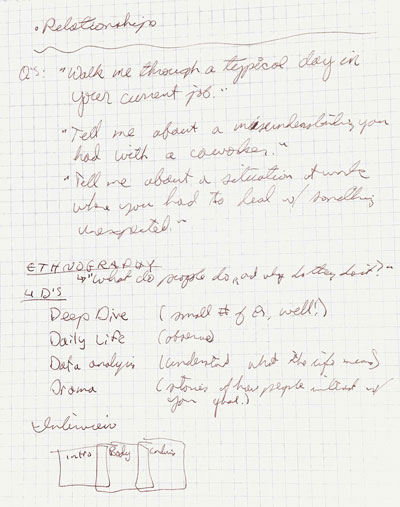 • Relationships
Q's: "Walk me through a typical day in
your current job."
"Tell me about a misunderstanding you
had with a coworker."
"Tell me about a situation at work
where you had to deal w/ something
unexpected."
ETHNOGRAPHY
↳ "What do people do, and why do they do it?"
4 D'S
Deep Dive (small # of Qs, well!)
Daily Life (observe)
Data analysis (understand what the life means)
Drama (stories of how people interact w/
your
Interview
intro Body